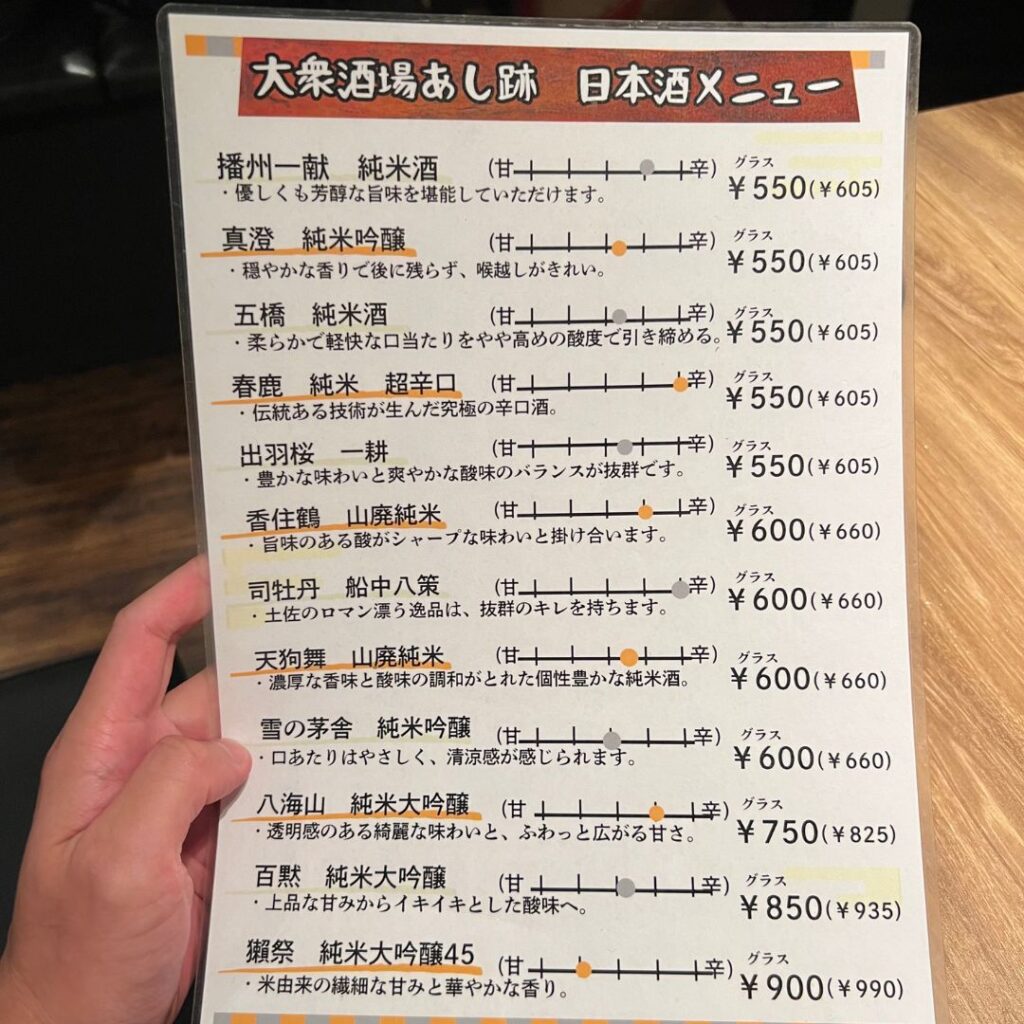 大衆酒場あし跡　日本酒メニュー
播州一献　純米酒　(甘　辛)　グラス
・優しくも芳醇な旨味を堪能していただけます。　￥550(￥605)
真澄　純米吟醸　(甘　辛)　グラス
・穏やかな香りで後に残らず、喉越しがきれい。　￥550(￥605)
五橋　純米酒　(甘　辛)　グラス
・柔らかで軽快な口当たりをやや高めの酸度で引き締める。　￥550(￥605)
春鹿　純米　超辛口　(甘　辛)　グラス
・伝統ある技術が生んだ究極の辛口酒。　￥550(￥605)
出羽桜　一耕　(甘　辛)　グラス
・豊かな味わいと爽やかな酸味のバランスが抜群です。　￥550(￥605)
香住鶴　山廃純米　(甘　辛)　グラス
・旨味のある酸がシャープな味わいと掛け合います。　￥600(￥660)
司牡丹　船中八策　(甘　辛)　グラス
・土佐のロマン漂う逸品は、抜群のキレを持ちます。　￥600(￥660)
天狗舞　山廃純米　(甘　辛)　グラス
・濃厚な香味と酸味の調和がとれた個性豊かな純米酒。　￥600(￥660)
雪の茅舎　純米吟醸　(甘　辛)　グラス
・口あたりはやさしく、清涼感が感じられます。　￥600(￥660)
八海山　純米大吟醸　(甘　辛)　グラス
・透明感のある綺麗な味わいと、ふわっと広がる甘さ。　￥750(￥825)
百黙　純米大吟醸　(甘　辛)　グラス
・上品な甘みからイキイキとした酸味へ。　￥850(￥935)
獺祭　純米大吟醸45　(甘　辛)　グラス
・米由来の繊細な甘みと華やかな香り。　￥900(￥990)